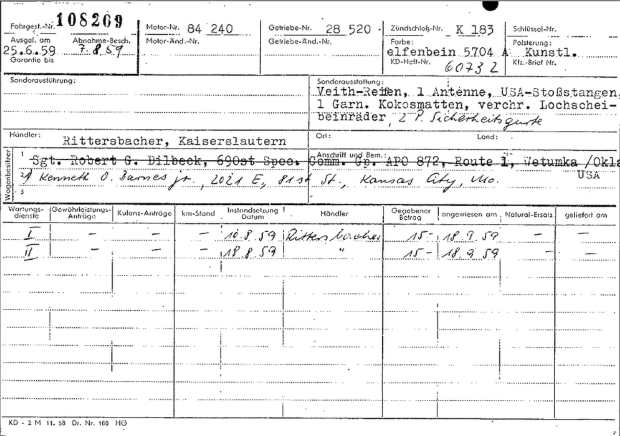 Fahrgest.-Nr. 108269 Motor-Nr. 84 240 Getriebe-Nr. 28 520 Zündschloß-Nr. K 183 Schlüssel-Nr.
Ausgel. am Abnahme-Besch. Motor-Änd.-Nr. Getriebe-Änd.-Nr. Farbe: Polsterung:
25.6.59 7.8.59 elfenbein 5704 A Kunstl.
Garantie bis KD-Heft-Nr. 60732 Kfz.-Brief Nr.
Sonderausführung: Sonderausstattung:
Veith-Reifen, 1 Antenne, USA-Stoßstangen,
1 Garn. Kokosmatten, verchr. Lochschei-
beinräder, 2 P. Sicherheitsgurte
Händler: Rittersbacher, Kaiserslautern Ort: Land:
Wagenbesitzer Anschrift und Bem.:
1 Sgt. Robert G. Dilbeck, 690st Spec. Comm. Gp. APO 872, Route 1, Wetumka /Okla
2 Kenneth O. Barnes jr., 2021 E, 81st St., Kansas City, Mo. USA
3
Wartungs-dienste Gewährleistungs-Anträge Kulanz-Anträge km-Stand Instandsetzung Datum Händler Gegebener Betrag angewiesen am Natural-Ersatz geliefert am
I – – – 10.8.59 Rittersbacher 15- 18.9.59 – –
II – – – 18.8.59 " 15- 18.9.59 – –
KD - 2 M 11. 58 Dr. Nr. 160 HG